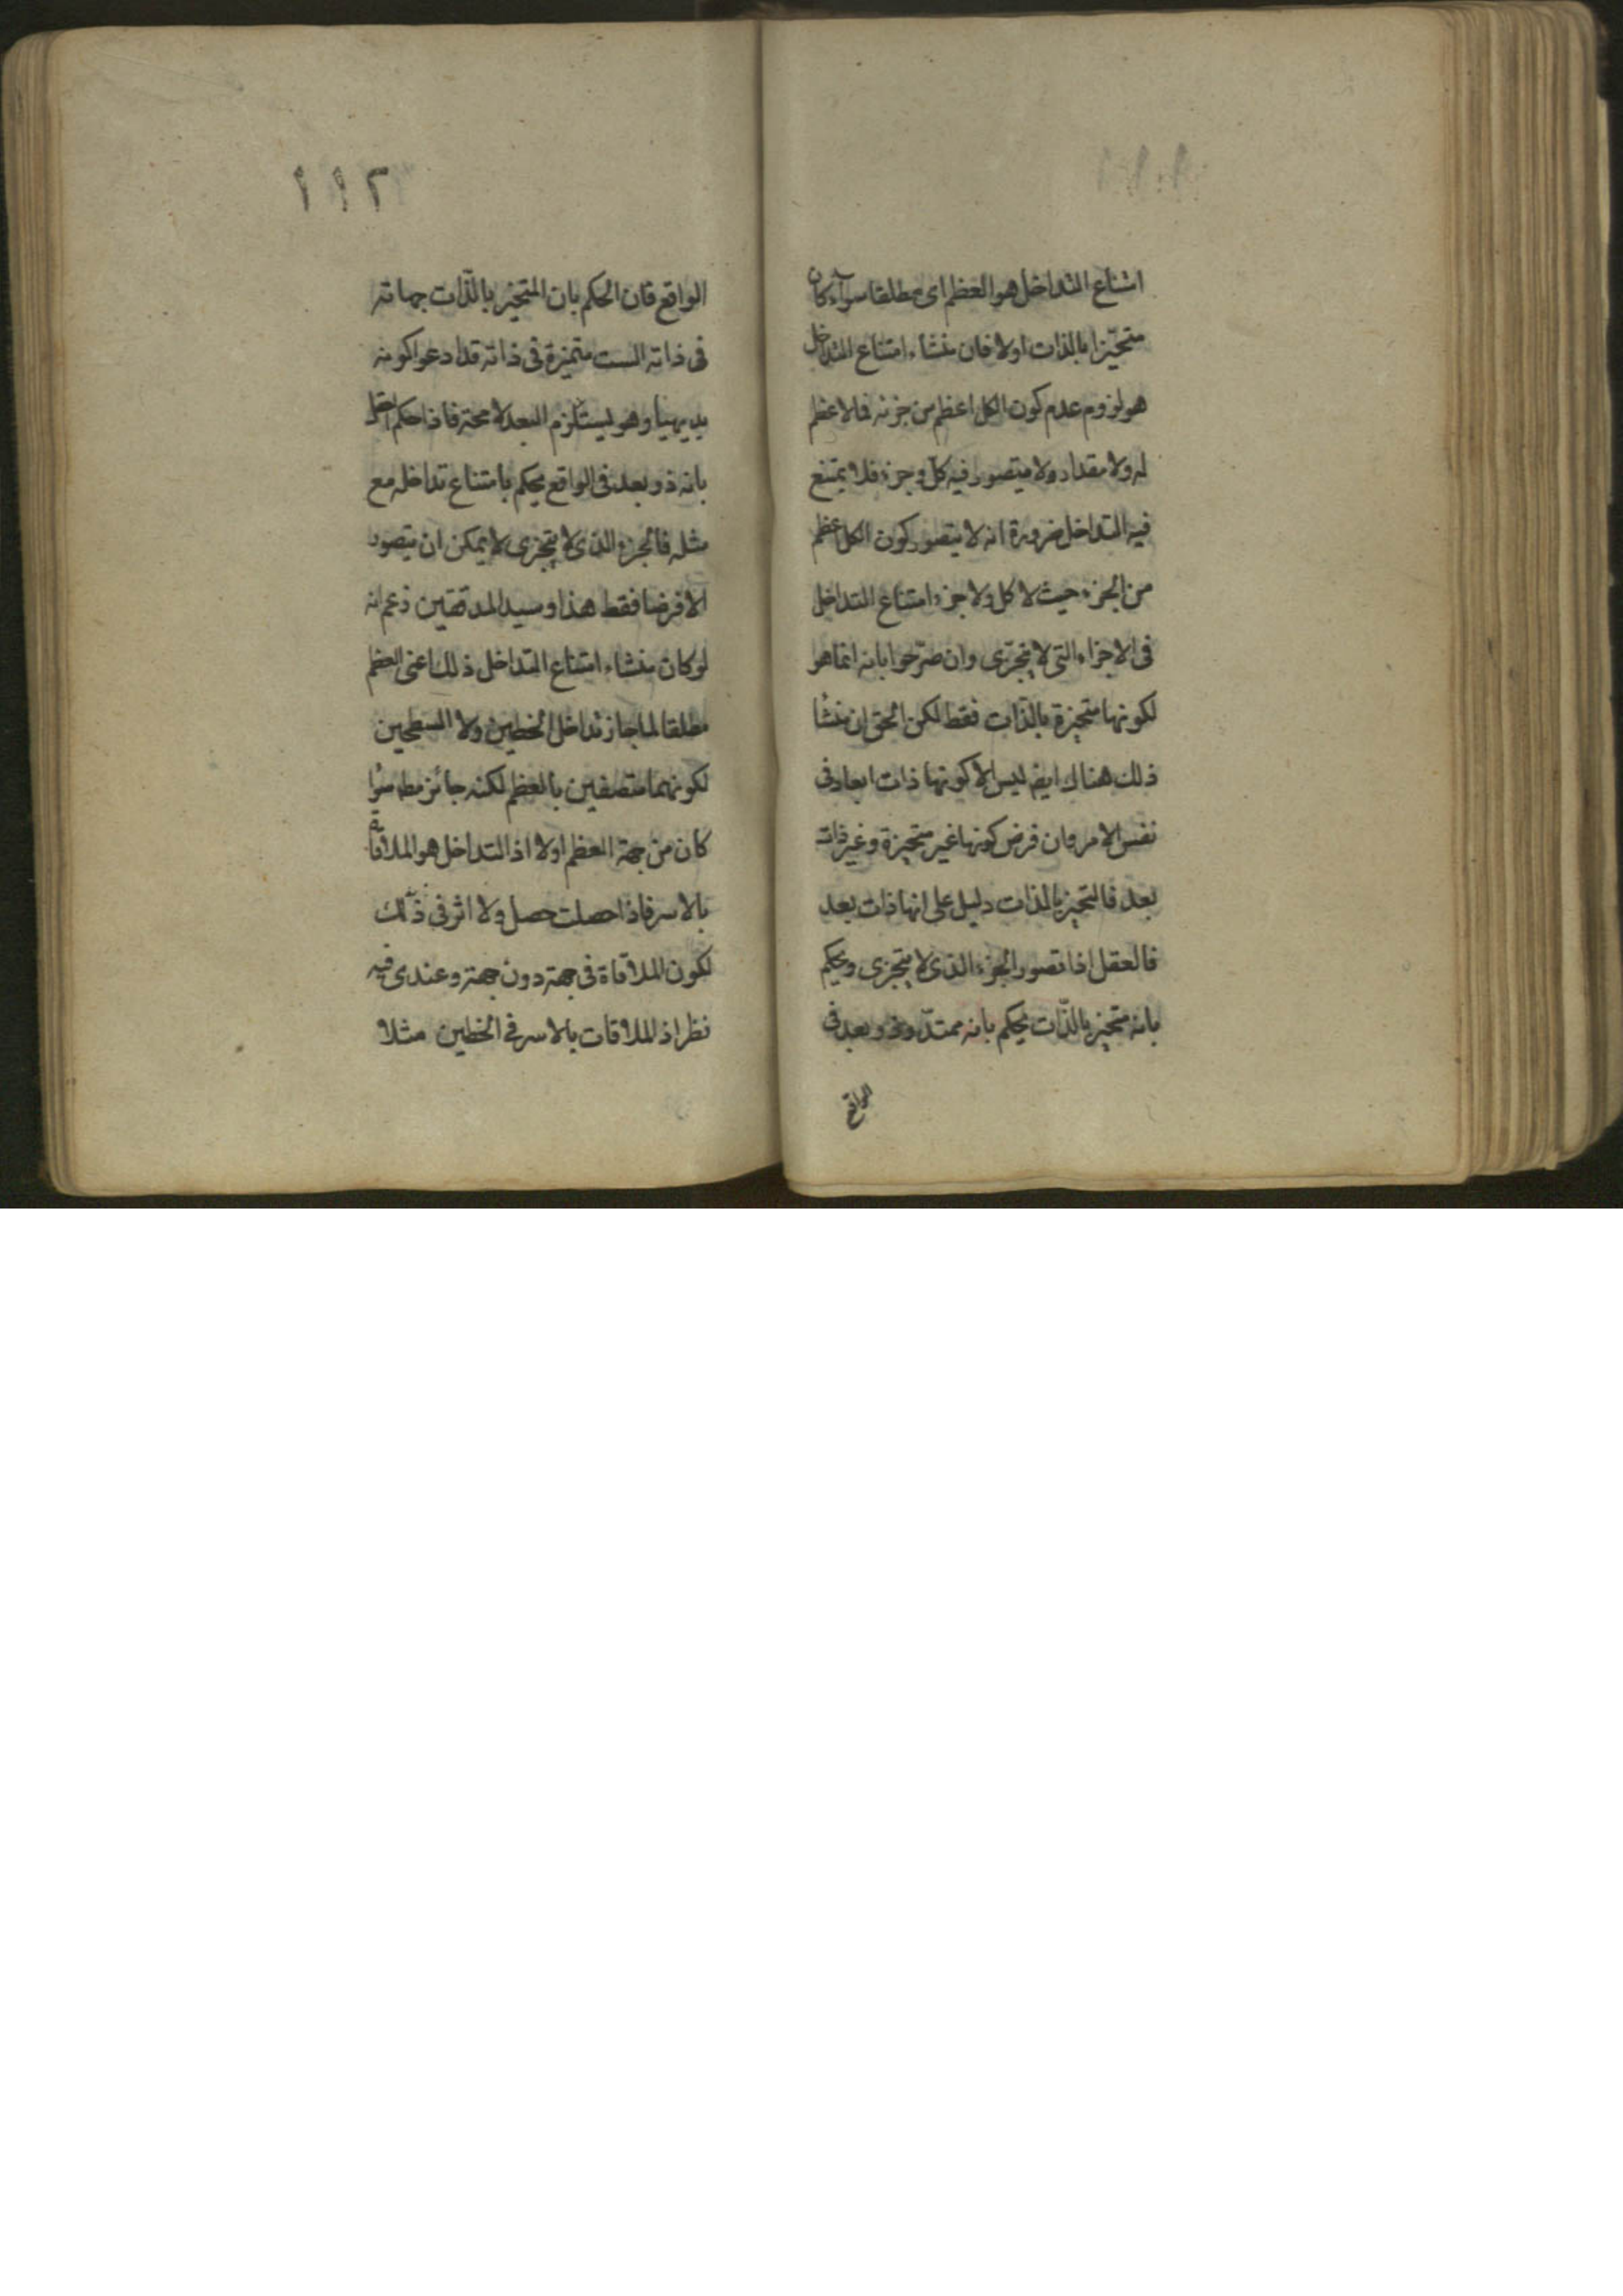 امتناع التداخل هو العظم اى مطلقا سوآء كان
متحيّزا بالذات اولا فان منشاء امتناع التداخل
هو لزوم عدم كون الكل اعظم من جزئه فلا عظم
له ولا مقدار ولا يتصور فيه كل وجزء فلا يمتنع
فيه التداخل ضرورة انه لا يتصور كون الكل اعظم
من الجزء حيث لا كل ولا جزء امتناع التداخل
فى الاجزاء التى لا يتجزى وان صرّحوا بانه انما هو
لكونها متحيزة بالذّات فقط لكن الحق ان منشأ
ذلك هناك ايضا ليس الا كونها ذات ابعاد فى
نفس الامر وان فرض كونها غير متحيزة وغير ذات
بعد فالتحيز بالذات دليل على انها ذات بعد
فالعقل اذا تصور الجزء الذى لا يتجزى ويحكم
بانه متحيز بالذّات يحكم بانه ممتدّ وذو بعد فى
الواقع
١١٢
الواقع فان الحكم بان المتحيز بالذّات جهاته
فى ذاته الست متميزة فى ذاته قد ادعوا كونه
بديهيا وهو يستلزم البعد لا محة فاذا حكم العقل
بانه ذو بعد فى الواقع يحكم بامتناع تداخله مع
مثله فالجزء الذى لا يتجزى لا يمكن ان يتصور
الا فرضا فقط هذا وسيد المدققين زعم انه
لو كان منشاء امتناع التداخل ذلك اعنى العظم
مطلقا لما جاز تداخل الخطين ولا السطحين
لكونهما متصفين بالعظم لكنه جائز مطـ سوٓا
كان من جهة العظم اولا اذ التداخل هو الملاقاة
بالاسر فاذا حصلت حصل ولا اثر فى ذلك
لكون الملاقاة فى جهة دون جهة وعندى فيه
نظر اذ الملاقات بالاسر فى الخطين مثلا